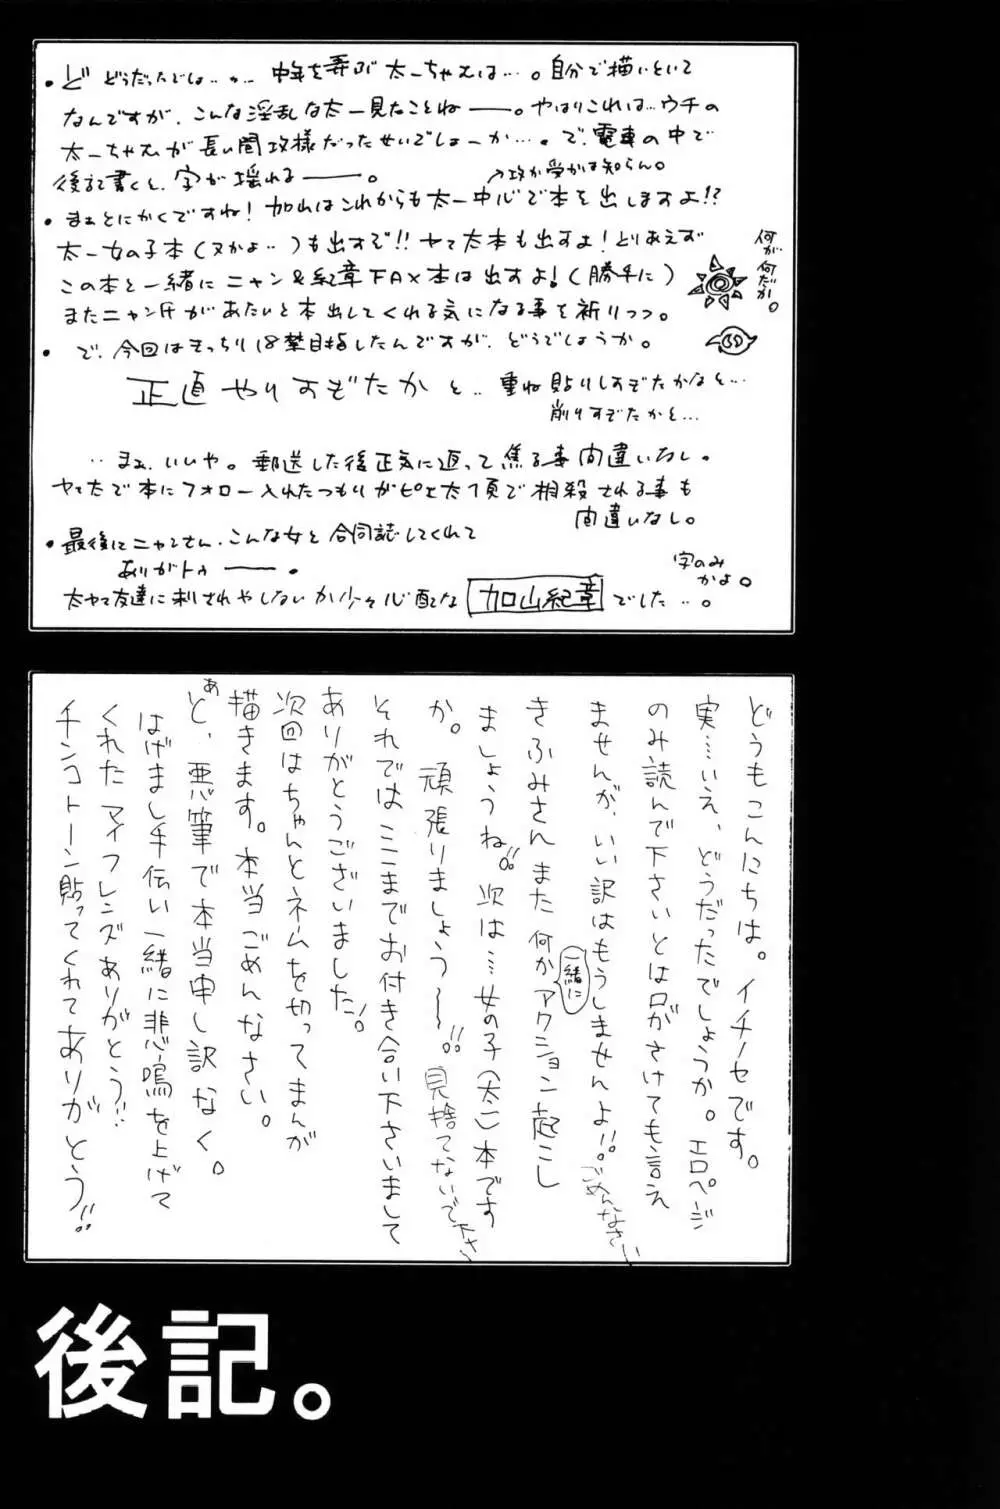 ・ど どうだったでしょ…。中年を弄ぶ太一ちゃんは…。自分で描いといて
なんですが、こんな淫乱な太一見たことねー。やはりこれは…ウチの
太一ちゃんが長い間攻様だったせいでしょーか…。で、電車の中で
後記書くと、字が揺れるー。
↗攻か受かは知らん。
・まぁとにかくですね！加山はこれからも太一中心で本を出しますよ!?
太一女の子本（ヌかよ‥）も出すぞ!!ヤマ太本も出すよ！とりあえず
この本と一緒にニャン&紀章FAX本は出すよ！（勝手に）
またニャン氏があたいと本出してくれる気になる事を祈りつつ。
何が何だか。
・で、今回はきっちり18禁目指したんですが、どうでしょうか。
正直やりすぎたかと‥重ね貼りしすぎたかなと…
削りすぎたかと…
‥まぁ、いいや。郵送した後正気に返って焦る事間違いなし。
ヤマ太で本にフォロー入れたつもりがピエ太1頁で相殺される事も
間違いなし。
・最後にニャンさん、こんな女と合同誌してくれて
ありがトゥー。
字のみかよ。
太ヤマ友達に刺されやしないか少々心配な 加山紀章 でした‥。
どうもこんにちは。イチノセです。
実…いえ、どうだったでしょうか。エロページ
のみ読んで下さいとは口がさけても言え
ませんが、いい訳はもうしませんよ!!。ごめんなさい
きふみさんまた何か一緒にアクション起こし
ましょうね!!。次は…女の子（太一）本です
か。頑張りましょう〜!!。見捨てないで下さい
それではここまでお付き合い下さいまして
ありがとうございました！。
次回はちゃんとネームを切ってまんが
描きます。本当ごめんなさい。
あと、悪筆で本当申し訳なく。
はげまし手伝い一緒に悲鳴を上げて
くれたマイフレンズありがとう!!
チンコトーン貼ってくれてありがとう!!
後記。